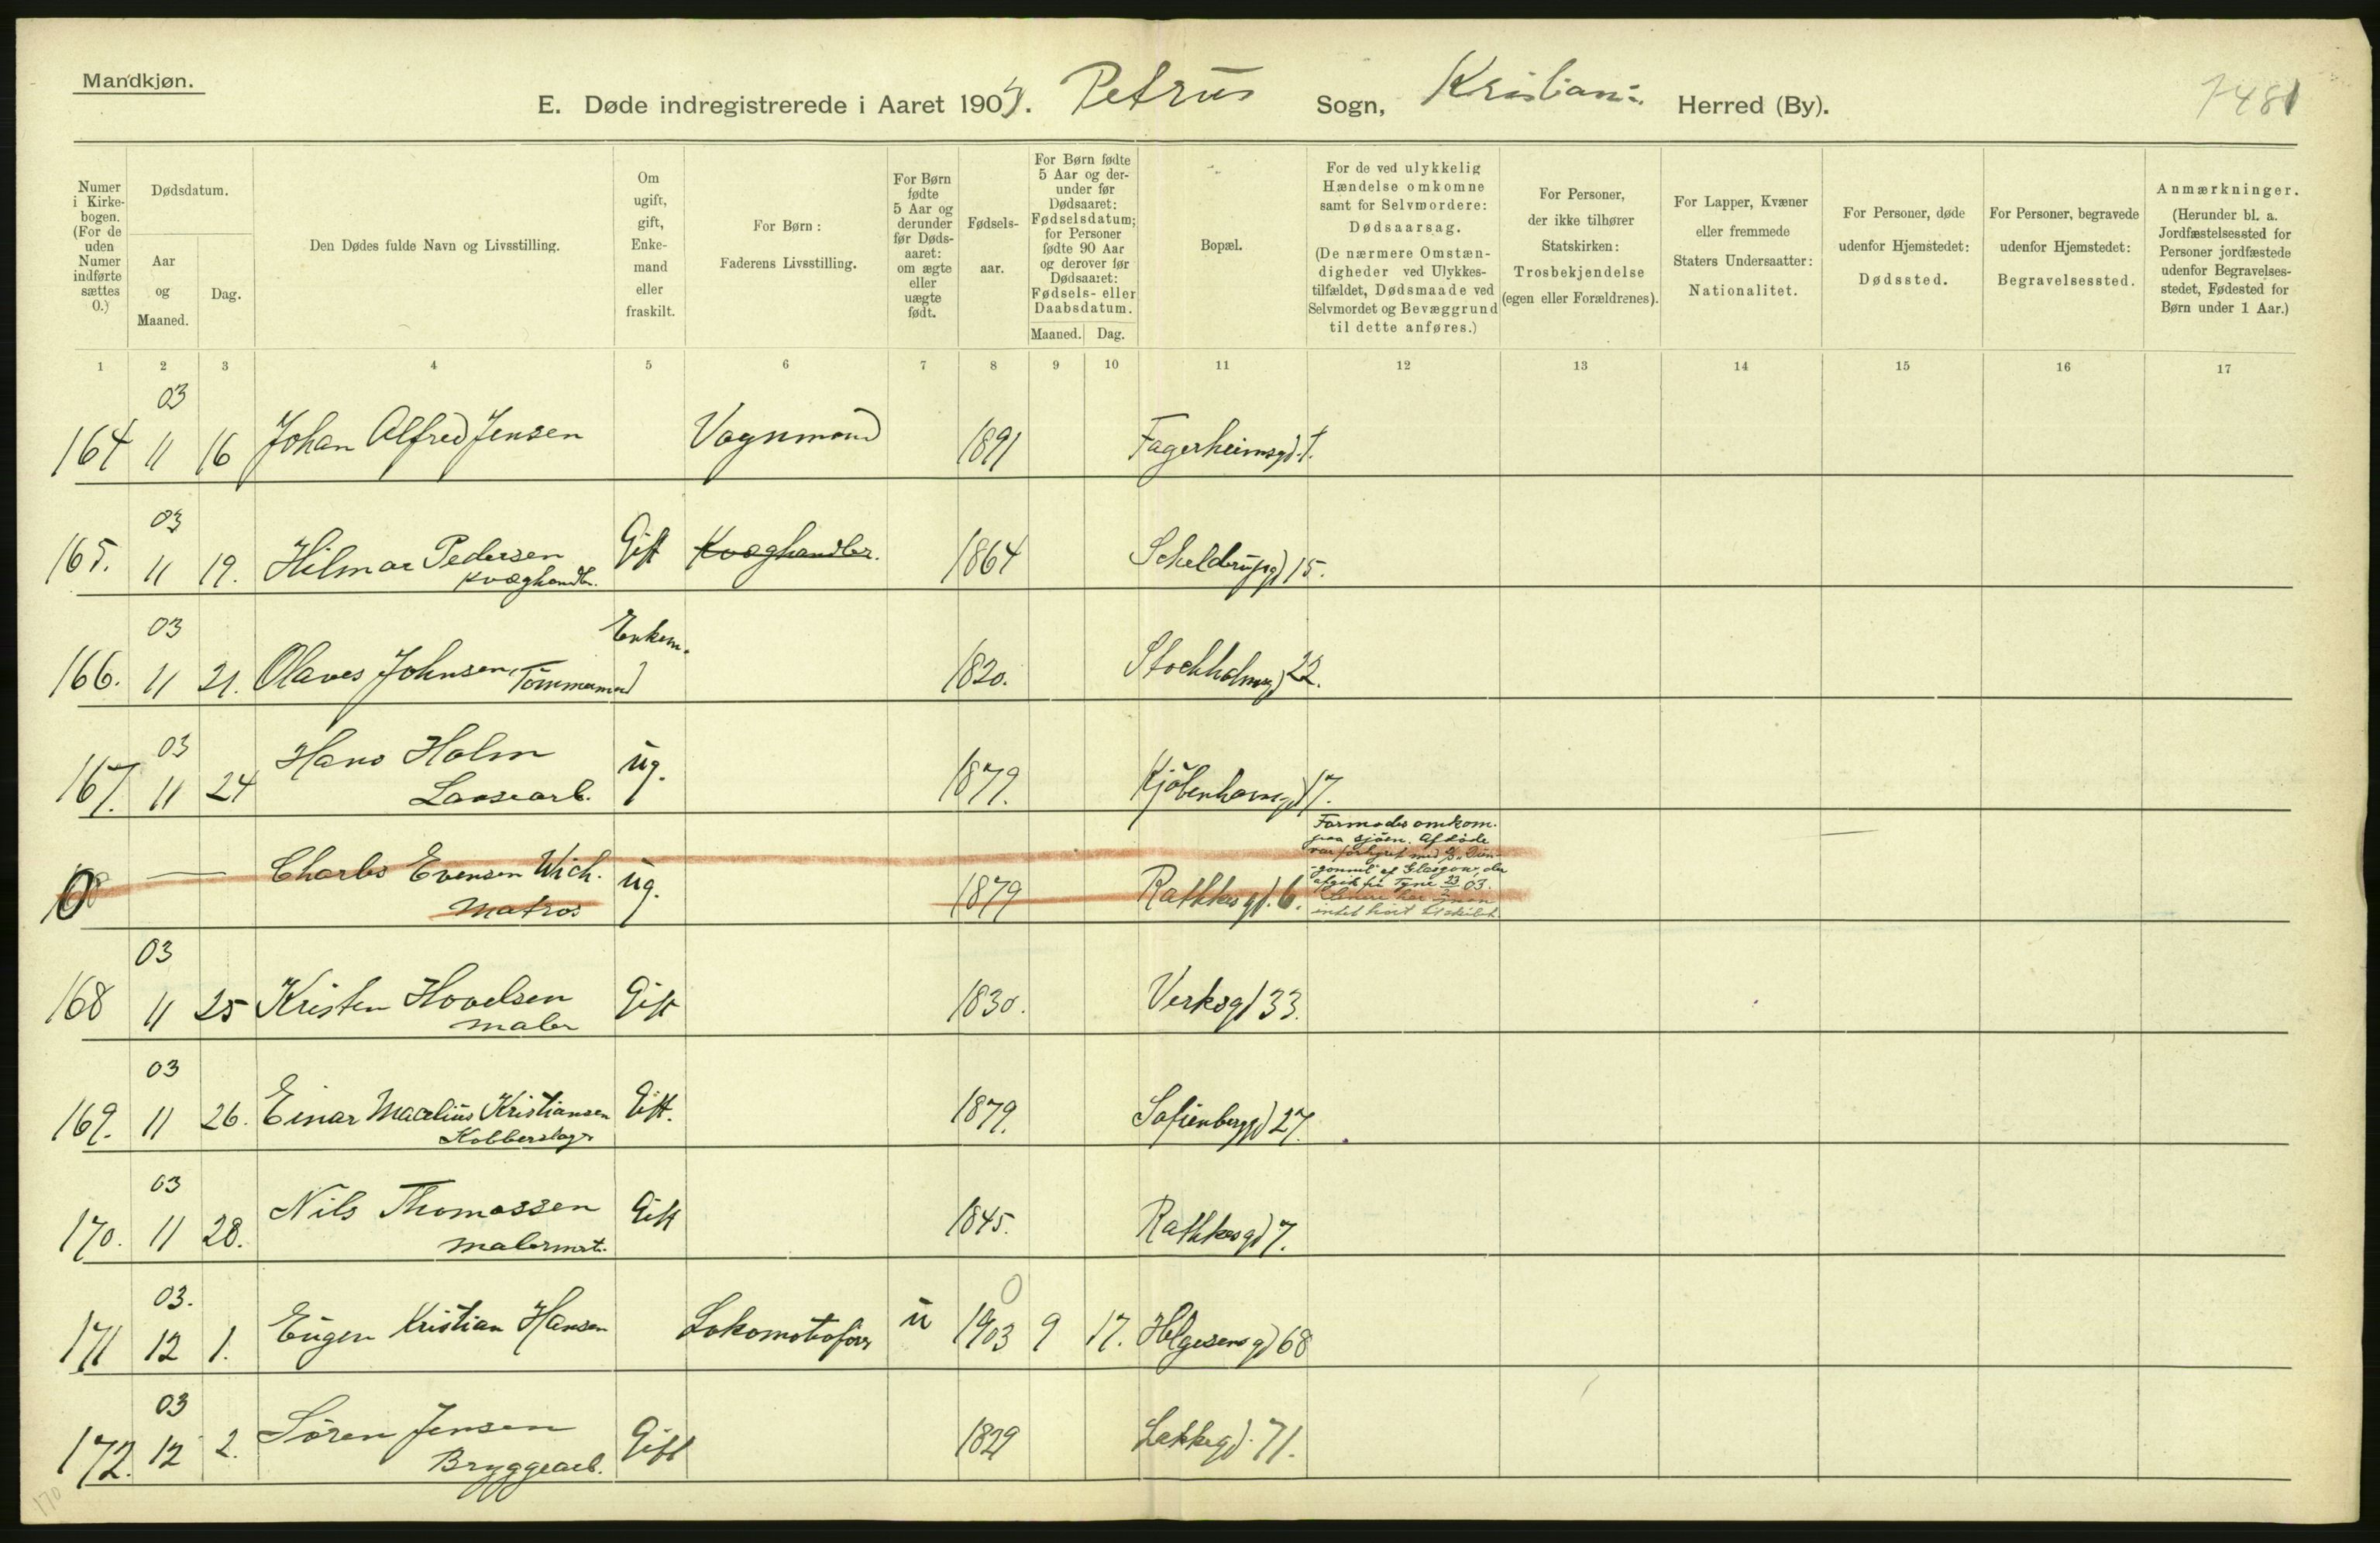 Mandkjøn.
E. Døde indregistrerede i Aaret 1903. Petrus Sogn, Kristiania Herred (By).
Numer i Kirkebogen. (For de uden Numer indførte sættes 0.)
Dødsdatum.
Aar og Maaned.
Dag.
Den Dødes fulde Navn og Livsstilling.
Om ugift, gift, Enkemand eller fraskilt.
For Børn: Faderens Livsstilling.
For Børn fødte 5 Aar og derunder før Dødsaaret: om ægte eller uægte født.
Fødselsaar.
For Børn fødte 5 Aar og derunder før Dødsaaret: Fødselsdatum; for Personer fødte 90 Aar og derover før Dødsaaret: Fødsels- eller Daabsdatum.
Maaned. Dag.
Bopæl.
For de ved ulykkelig Hændelse omkomne samt for Selvmordere: Dødsaarsag. (De nærmere Omstændigheder ved Ulykkestilfældet, Dødsmaade ved Selvmordet og Bevæggrund til dette anføres.)
For Personer, der ikke tilhører Statskirken: Trosbekjendelse (egen eller Forældrenes).
For Lapper, Kvæner eller fremmede Staters Undersaatter: Nationalitet.
For Personer, døde udenfor Hjemstedet: Dødssted.
For Personer, begravede udenfor Hjemstedet: Begravelsessted.
Anmærkninger. (Herunder bl. a. Jordfæstelsessted for Personer jordfæstede udenfor Begravelsesstedet, Fødested for Børn under 1 Aar.)
1 2 3 4 5 6 7 8 9 10 11 12 13 14 15 16 17
03
164 11 16 Johan Alfred Jensen Vognmand 1891 Fagerheimsgd.
03
165. 11 19. Hilmar Pedersen Gift Kvæghandler. 1864 Schelderupsgd 15.
Kvæghandler.
03 Enkem.
166. 11 21. Olaves Johnsen, Tømmermand 1820. Stockholmsgd 22.
03
167. 11 24 Hans Holm ug. 1879. Kjøbenhavnsgd 17.
Løsearb.
Formodes omkom.
paa sjøen. Afdøde
0 — Charles Evensen Wich. ug. 1879 Rathkesgd. 6.
Matros
afgik fra Tyne 23/2 03.
intet hørt til skibet.
03
168 11 25 Kristen Hovelsen Gift 1830. Verksgd 33.
Maler
03
169. 11 26. Einar Marelius Kristiansen Gift. 1879. Sofienberggd 27.
Kobberslager
03
170. 11 28. Nils Thomassen Gift 1845. Rathkesgd 7.
Malermest.
03. 0
171 12 1. Eugen Kristian Hansen Lokomotivfører u 1903 9 17. Helgesensgd 68
03
172. 12 2. Søren Jensen Gift 1829 Lakkegd. 71.
Bryggearb.
170